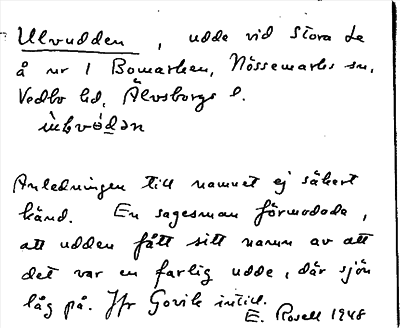 Ulvudden, udde vid Stora Le
å nr 1 Bomarken, Nössemarks sn,
Vedbo hd, Älvsborgs l.
Anledningen till namnet ej säkert
känd. En sagesman förmodade,
att udden fått sitt namn av att
det var en farlig udde, där sjön
låg på. Jfr
E. Rosell 1948